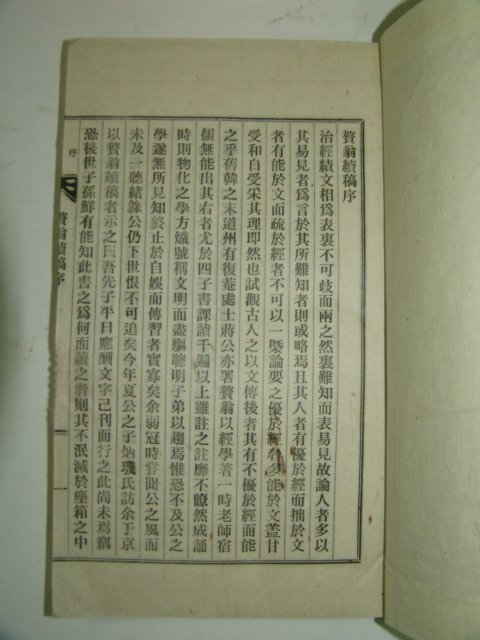 贅翁續稿序
治經績文相爲表裏不可歧而兩之然裏難知而表易見故論人者多以
其易見者爲言於其所難知者則或略焉且其人者有優於經而拙於文
者有能於文而疏於經者不可以一槩論要之優於經者多能於文盖甘
受和白受采其理卽然也試觀古人之以文傳後者其有不優於經而能
之乎舊韓之末道州有復菴處士蔣公亦署贅翁以經學著一時老師宿
儒無能出其右者尤於四子書課讀千遍以上雖註之註靡不瞭然成誦
時則物化之學方熾號稱文明而盡驅聰明子弟以趨焉惟恐不及公之
學遂無所見知終止於自娛而傳習者實寡矣余弱冠時甞聞公之風而
未及一聽緖餘公仍下世恨不可追矣今年夏公之子炳璣氏訪余于京
以贅翁續稿者示之曰吾先子平日應酬文字已刊而行之此尚未焉竊
恐後世子孫鮮有能知此書之爲何而續之者則其不泯滅於塵箱之中
序
贅翁續稿序
一